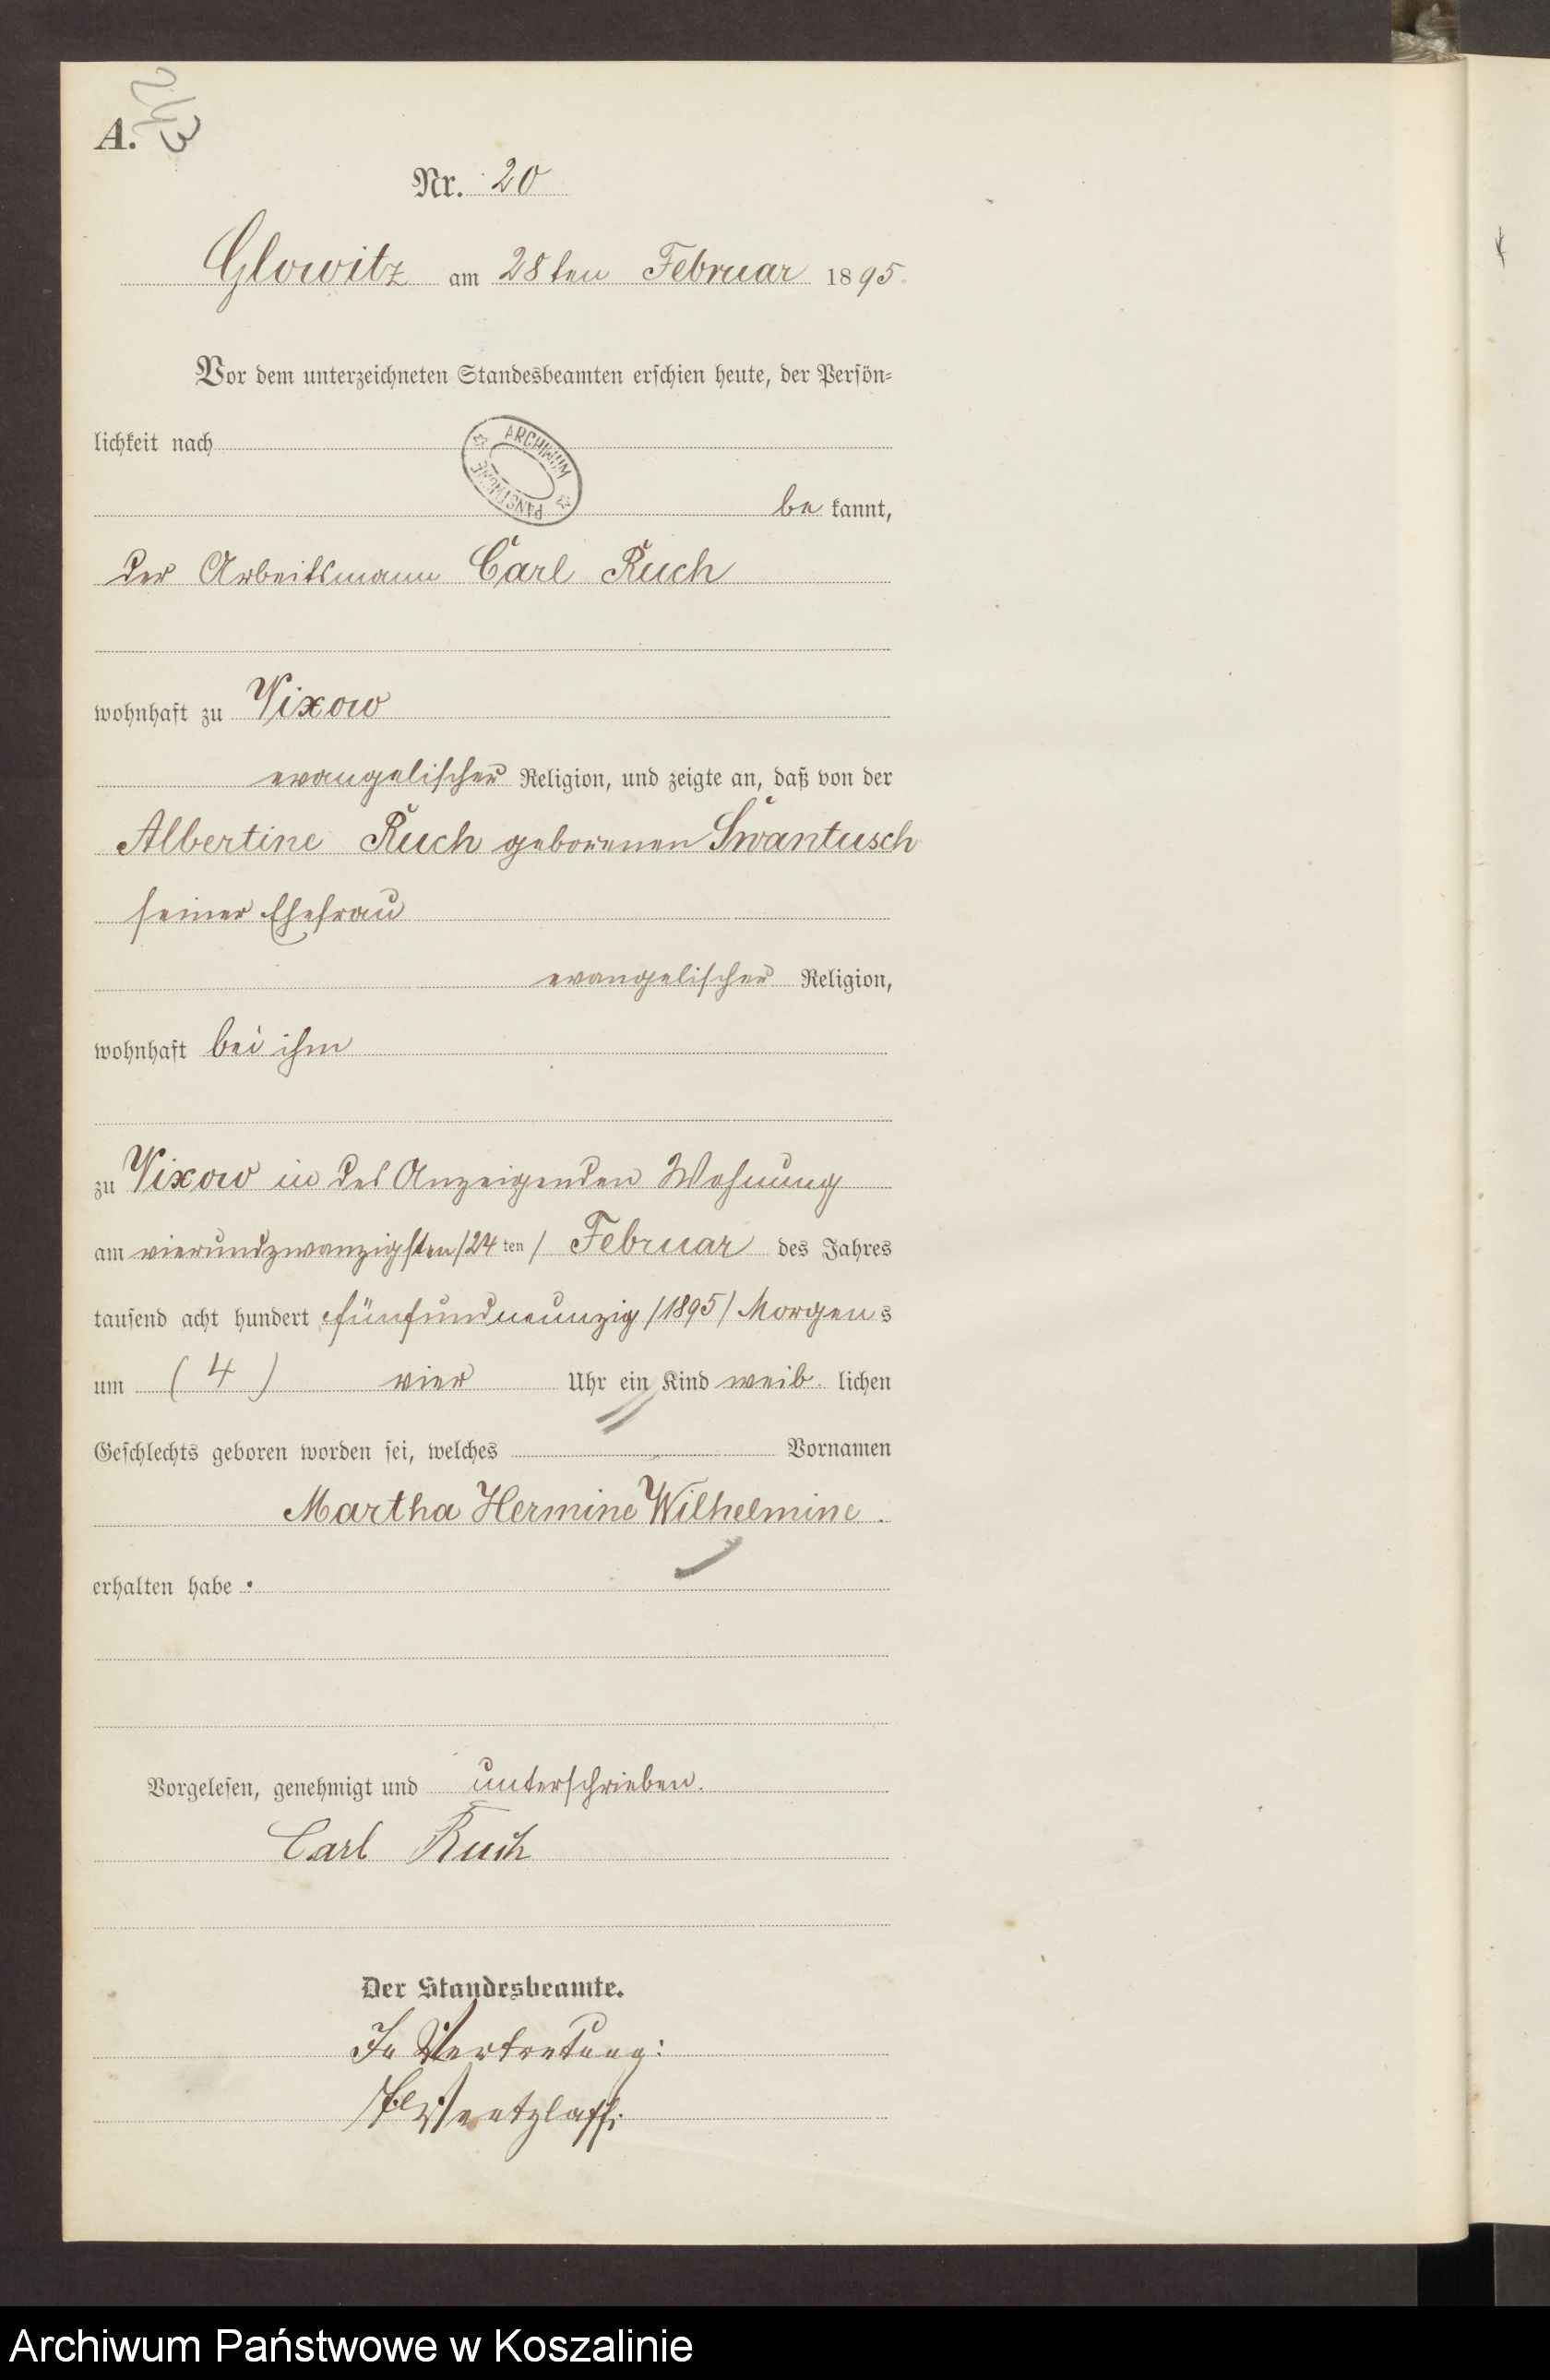 A.
Nr. 20
Glowitz am 28ten Februar 1895.
Vor dem unterzeichneten Standesbeamten erschien heute, der Persön=
lichkeit nach
ARCHIWUM PAŃSTWOWE
be kannt,
der Arbeitsmann Carl Ruch
wohnhaft zu Vixow
evangelischer Religion, und zeigte an, daß von der
Albertine Ruch geborenen Swantusch
seiner Ehefrau
evangelischer Religion,
wohnhaft bei ihm
zu Vixow in des Anzeigenden Wohnung
am vierundzwanzigsten /24ten/ Februar des Jahres
tausend acht hundert fünfundneunzig /1895/ Morgens
um (4) vier Uhr ein Kind weib lichen
Geschlechts geboren worden sei, welches Vornamen
Martha Hermine Wilhelmine.
erhalten habe.
Vorgelesen, genehmigt und unterschrieben.
Carl Ruch
Der Standesbeamte.
In Vertretung:
Archiwum Państwowe w Koszalinie